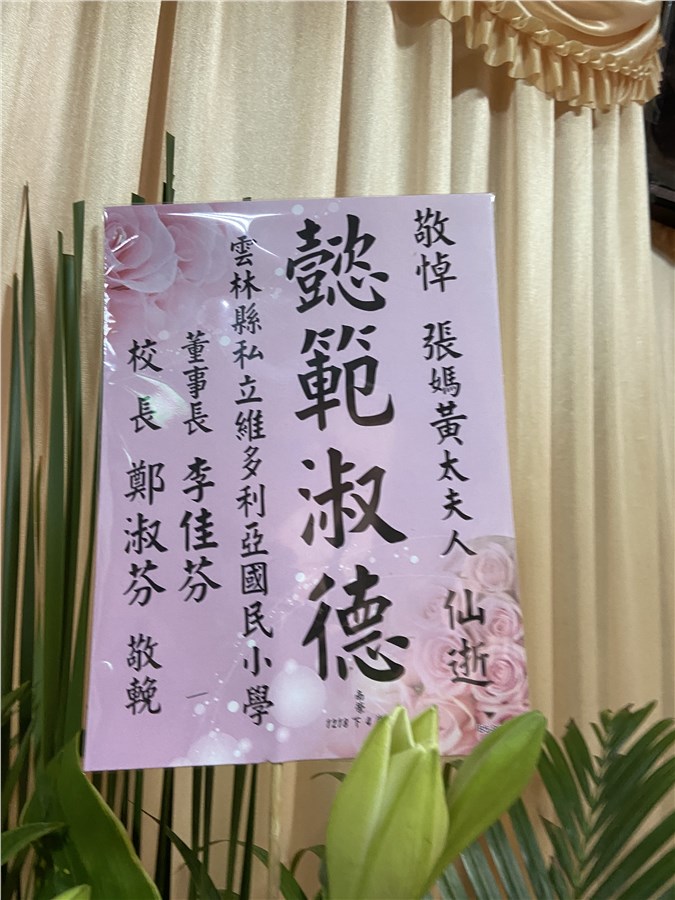 敬悼 張媽黃太夫人 仙逝
懿範淑德
雲林縣私立維多利亞國民小學
董事長 李佳芬
校長 鄭淑芬 敬輓
1218下4